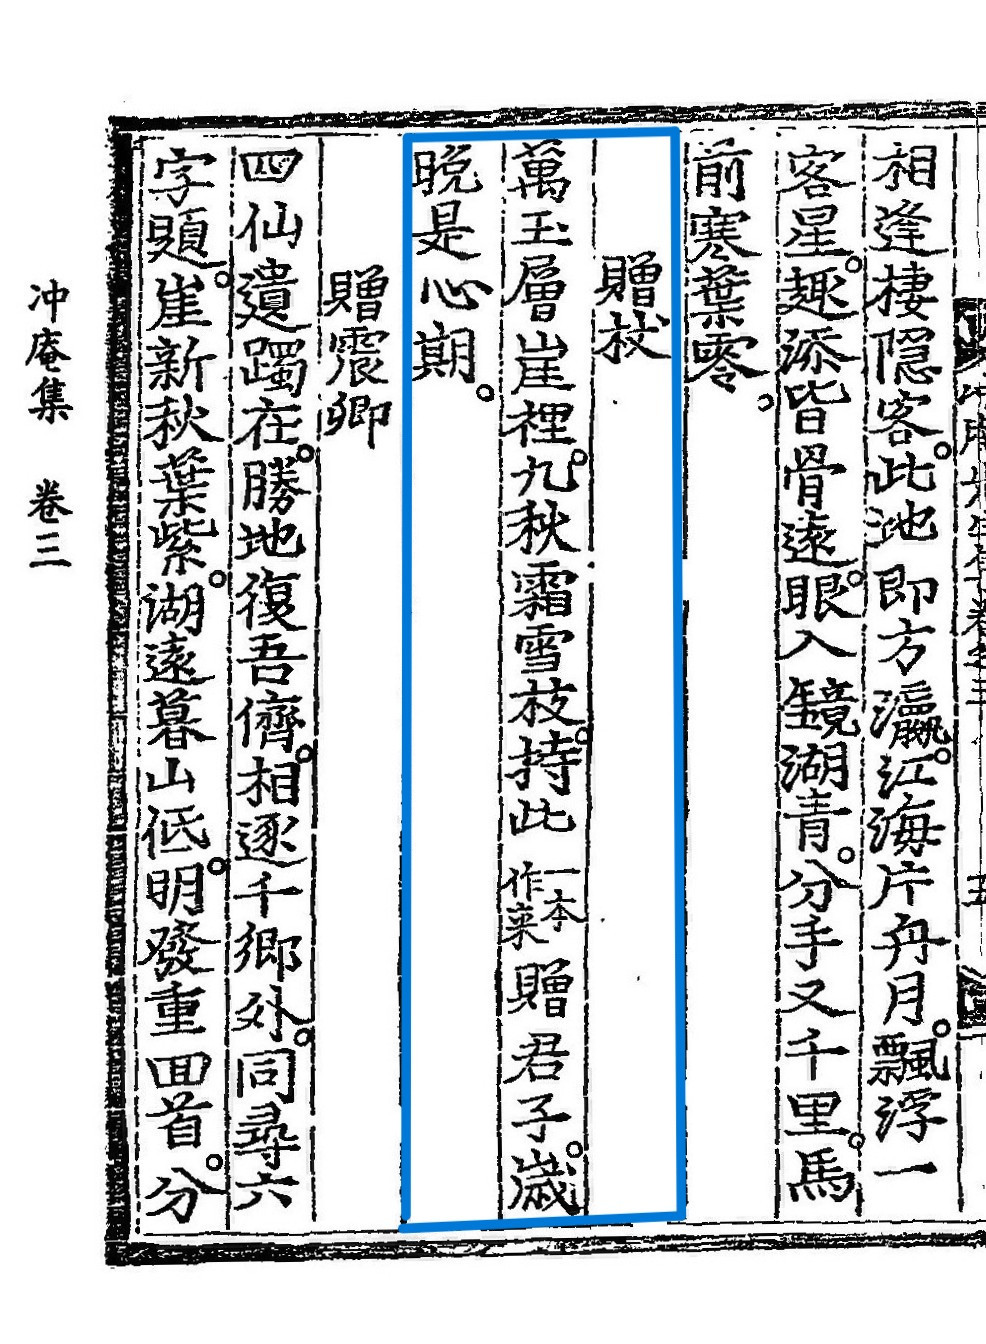 相逢棲隱客。此地即方瀛。江海片舟月。飄浮一
客星。趣添皆骨遠。眼入鏡湖青。分手又千里。馬
前寒葉零。
贈杖
萬玉層崖裡。九秋霜雪枝。持此一本作来贈君子。歲
晩是心期。
贈震卿
四仙遺躅在。勝地復吾儕。相逐千鄉外。同尋六
字題。崖新秋葉紫。湖遠暮山低。明發重回首。分
冲庵集 卷三